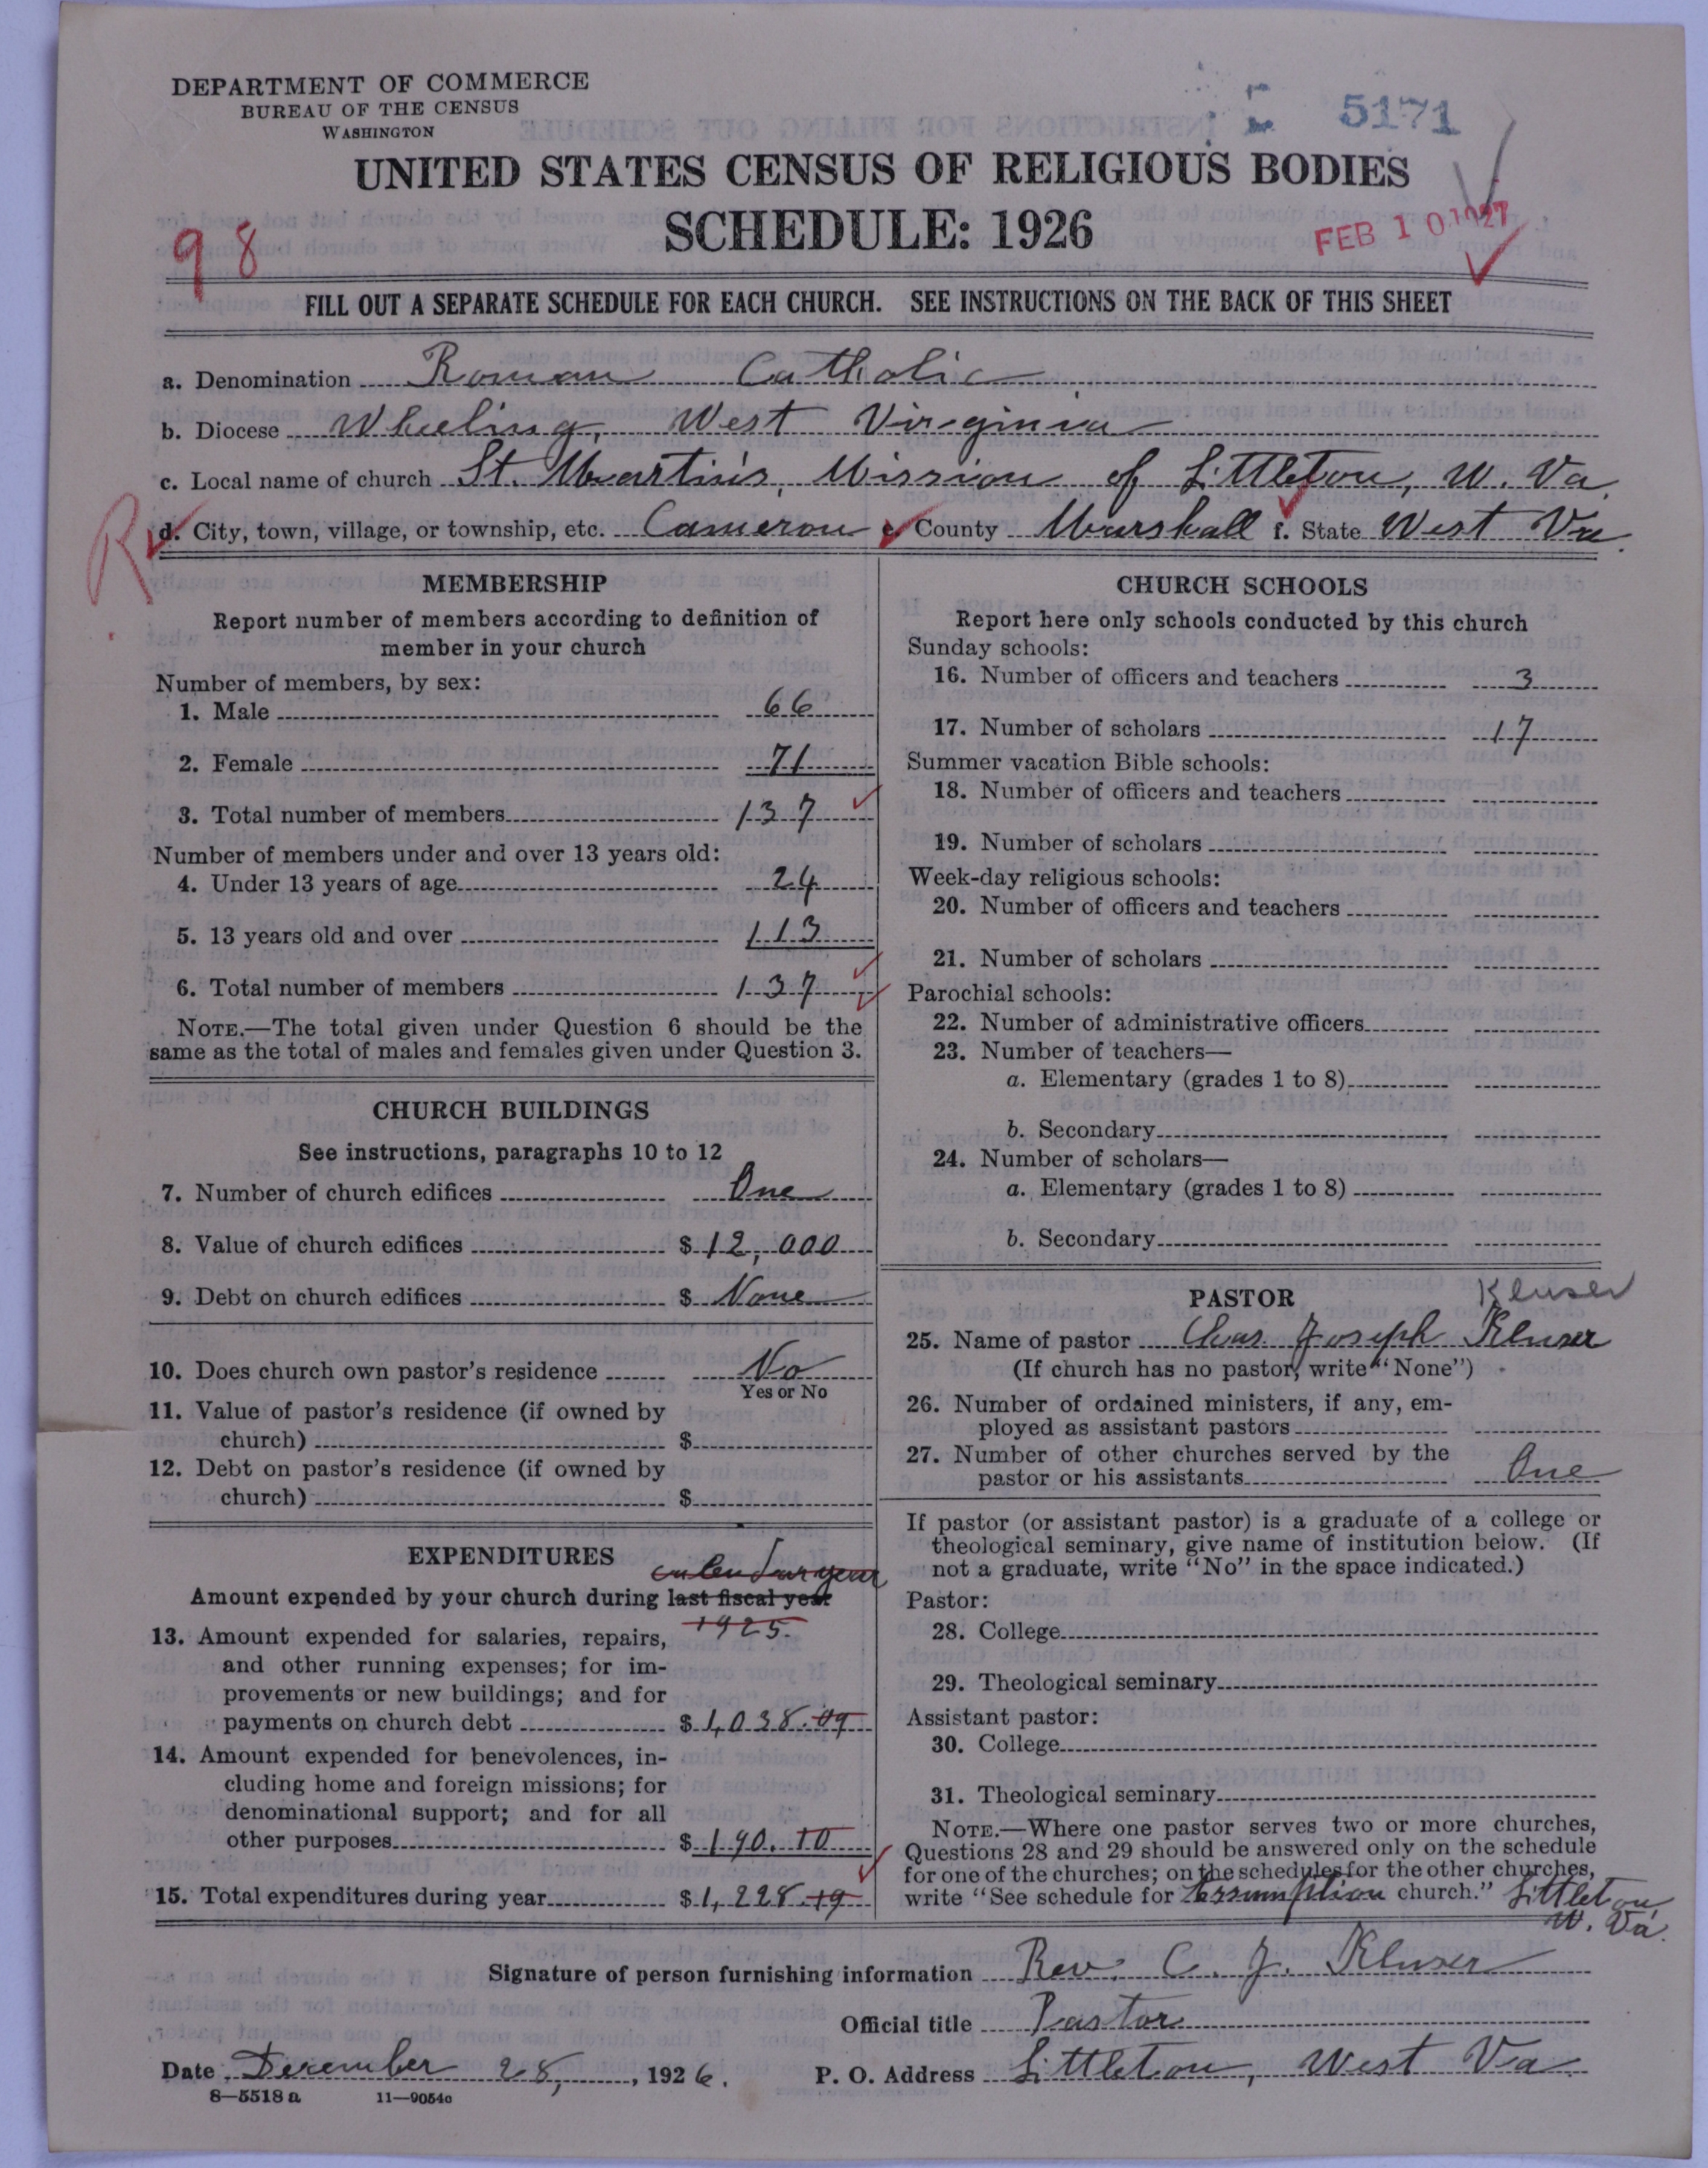 DEPARTMENT OF COMMERCE
BUREAU OF THE CENSUS
WASHINGTON
5171
UNITED STATES CENSUS OF RELIGIOUS BODIES
SCHEDULE: 1926
FEB 10 1927
98
FILL OUT A SEPARATE SCHEDULE FOR EACH CHURCH. SEE INSTRUCTIONS ON THE BACK OF THIS SHEET
a. Denomination Roman Catholic
b. Diocese Wheeling, West Virginia
c. Local name of church St. Martin's, Mission of Littleton, W. Va.
R d. City, town, village, or township, etc. Cameron e. County Marshall f. State West Va.
MEMBERSHIP
Report number of members according to definition of
member in your church
Number of members, by sex:
1. Male 66
2. Female 71
3. Total number of members 137
Number of members under and over 13 years old:
4. Under 13 years of age 24
5. 13 years old and over 113
6. Total number of members 137
NOTE.—The total given under Question 6 should be the
same as the total of males and females given under Question 3.
CHURCH BUILDINGS
See instructions, paragraphs 10 to 12
7. Number of church edifices One
8. Value of church edifices $ 12,000
9. Debt on church edifices $ None
10. Does church own pastor's residence No
Yes or No
11. Value of pastor's residence (if owned by
church) $
12. Debt on pastor's residence (if owned by
church) $
EXPENDITURES
calendar year
Amount expended by your church during last fiscal year
1925.
13. Amount expended for salaries, repairs,
and other running expenses; for im-
provements or new buildings; and for
payments on church debt $ 1,038.09
14. Amount expended for benevolences, in-
cluding home and foreign missions; for
denominational support; and for all
other purposes $ 190.10
15. Total expenditures during year $ 1,228.19
CHURCH SCHOOLS
Report here only schools conducted by this church
Sunday schools:
16. Number of officers and teachers 3
17. Number of scholars 17
Summer vacation Bible schools:
18. Number of officers and teachers
19. Number of scholars
Week-day religious schools:
20. Number of officers and teachers
21. Number of scholars
Parochial schools:
22. Number of administrative officers
23. Number of teachers—
a. Elementary (grades 1 to 8)
b. Secondary
24. Number of scholars—
a. Elementary (grades 1 to 8)
b. Secondary
PASTOR Kluser
25. Name of pastor Chas. Joseph Kluser
(If church has no pastor, write "None")
26. Number of ordained ministers, if any, em-
ployed as assistant pastors
27. Number of other churches served by the
pastor or his assistants One
If pastor (or assistant pastor) is a graduate of a college or
theological seminary, give name of institution below. (If
not a graduate, write "No" in the space indicated.)
Pastor:
28. College
29. Theological seminary
Assistant pastor:
30. College
31. Theological seminary
NOTE.—Where one pastor serves two or more churches,
Questions 28 and 29 should be answered only on the schedule
for one of the churches; on the schedules for the other churches,
write "See schedule for Assumption church." Littleton,
W. Va.
Signature of person furnishing information Rev. C. J. Kluser
Official title Pastor
Date December 28, 1926. P. O. Address Littleton, West Va.
8—5518 a 11—9054c